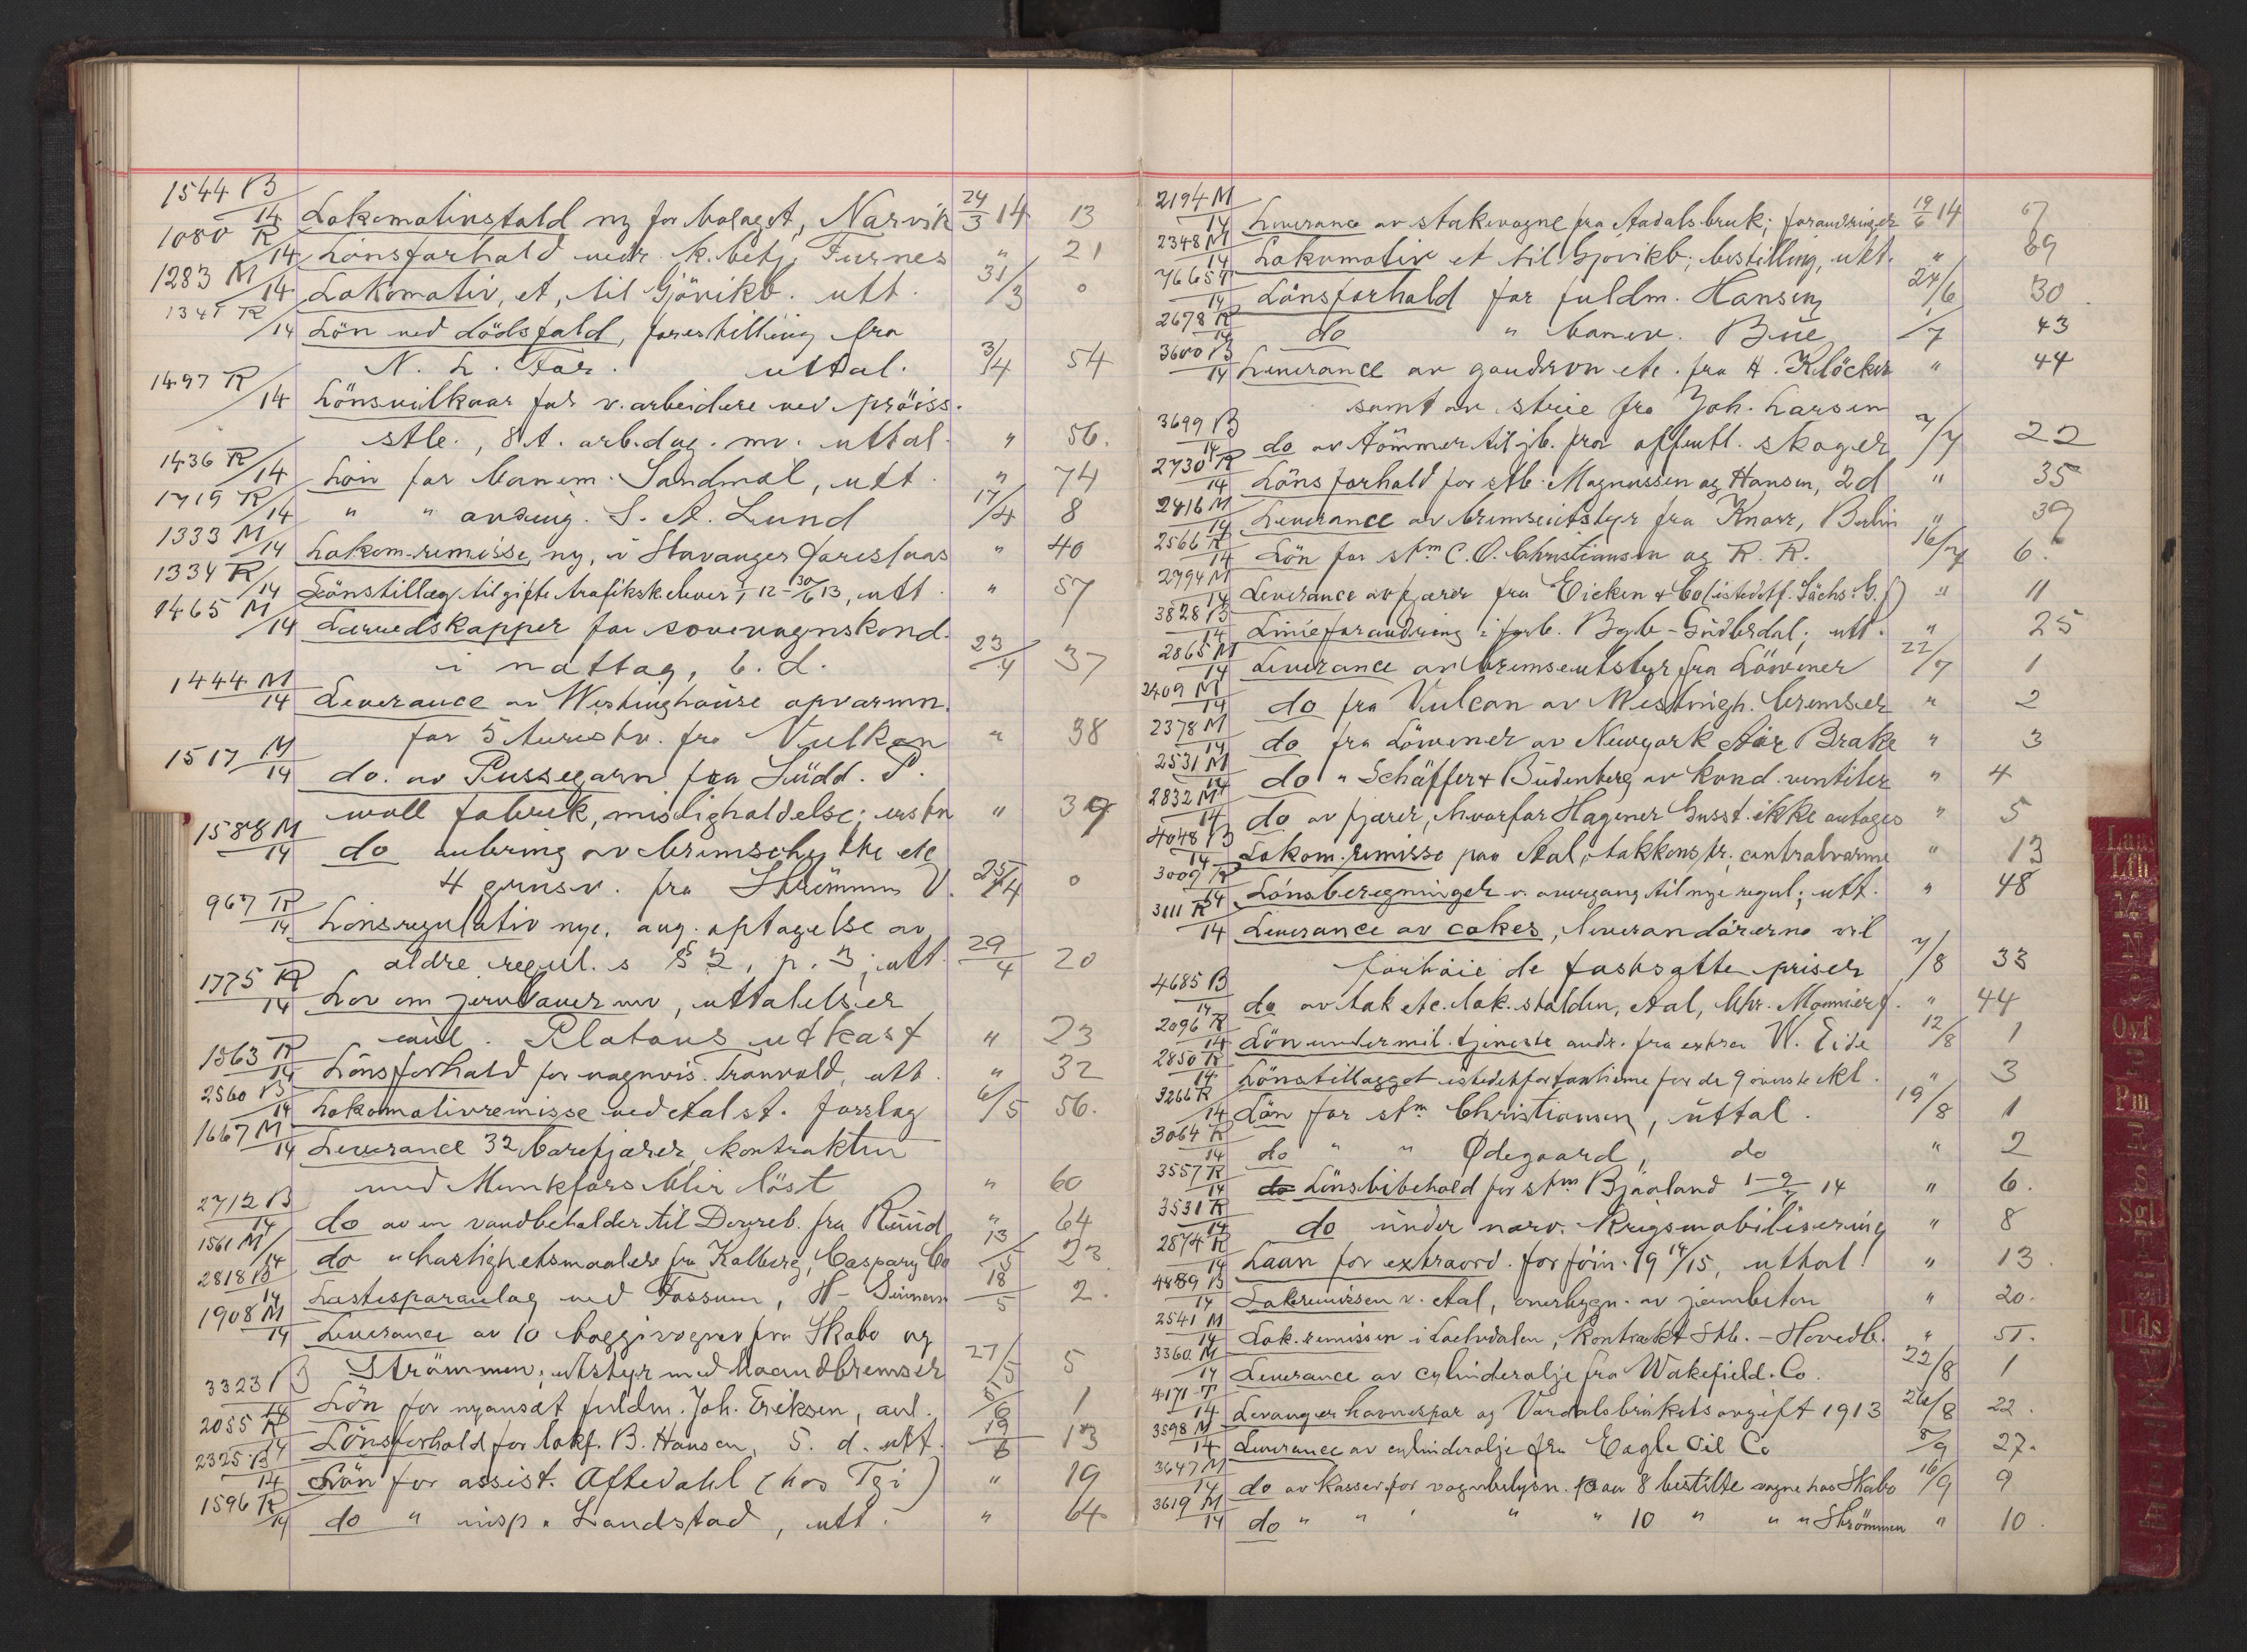 1544 B/14 Lokomotivstald ny for Malmget, Narvik 24/3 14 13
1080 R/14 Lönsforhold vedr. k. betj. Furnes " 21
1283 M/14 Lokomotiv, et, til Gjövikb. utt. 31/3 0
1341 R/14 Lön ved dödsfald, forestilling fra
N. L. For. uttal. 3/4 54
1497 R/14 Lönsvilkaar for v. arbeidere ved pröiss.
stb., 8 t. arb.dag. mv. uttal. " 56.
1436 R/14 Lön for banem. Sandmæl, utt. " 74
1719 R/14 " " avding. S. A. Lund 17/4 8
1333 M/14 Lokom-remisse, ny, i Stavanger foreslaas " 40
1334 R/14 Lönstillæg til gifte trafikskelever 1/1 12-30/6 13, utt. " 57
1465 M/14 Lærredskapper for sovevognskond.
i nattog, 6. d. 23/4 37
1444 M/14 Leverance av Westinghouse opvarmn.
for 5 turistv. fra Vulkan " 38
1517 M/14 do. av Pussegarn fra Südd. P.
woll fabrik, misligholdelse; erstn " 39
1588 M/14 do anbring av bremsehytte etc
4 grusv. fra Strömmens V. 25/4 0
967 R/14 Lönsregulativ nye, ang. optagelse av
ældre regul. s § 2, p. 3; utt. 29/4 20
1775 R/14 Lov om jernbaner mv, uttalelser
Platous utkast " 23
1563 R/14 Lönsforhold for vognvis. Tranvold, utt. " 32
2560 B/14 Lokomotivremisse ved Aal st. forslag 6/5 56.
1667 M/14 Leverance 32 bærefjærer, kontrakten
med Munkfors blir löst " 60
2712 B/14 do av en vandbeholder til Dovreb. fra Ruud " 64
1561 M/14 do " hastighetsmaalere fra Kalberg, Caspary Co 13/5 23
2818 B/14 Lastesporanlæg ved Fossum, H- 18/5 2.
1908 M/14 Leverance av 10 boggivogner fra Skabo og
Strömmen; utstyr med haandbremser 27/5 5
3323 B/14 Lön for nyansat fuldm. Joh. Eriksen, anl. 5/6 1
2055 R/14 Lönsforhold for lokf. B. Hansen, 5. d. utt. 19/6 13
2325 B/14 Lön for assist. Aftedahl (hos Tgi) " 19
1596 R/14 do " insp. Landstad, utt. " 64
2194 M/14 Leverance av stakevogne fra Aadalsbruk; forandringer 19/6 14 67
2348 M/14 Lokomotiv et til Gjövikb; bestilling, utt. " 69
/14 Lönsforhold for fuldm. Hansen 24/6 30.
2678 R/14 do " banev. Bue 1/7 43
3600 B/14 Leverance av goudron etc. fra A. Klöcker " 44
samt av strie fra Joh. Larsen
3699 B/14 do av tömmer til jb. fra offentl. skoger 7/7 22
2730 R/14 Lönsforhold for stb. Magnussen og Hansen, 2d " 35
2416 M/14 Leverance av bremseutstyr fra Knorr, Berlin " 39
2566 R/14 Lön for stm C. O. Christiansen og R. R. 16/7 6.
2794 M/14 Leverance av fjærer fra Eicken & Co (istedetf. Sächs. G. f) " 11
3828 B/14 Linieforandring i forb. Bgb-Gudbrdal; utt. " 25
2865 M/14 Leverance av bremseutstyr fra Löwener 22/7 1
2409 M/14 do fra Vulcan av Westingh. bremser " 2
2378 M/14 do fra Löwener av Newyork Air Brake " 3
2531 M/14 do " Schäffer & Budenberg av kond. ventiler " 4
2832 M/14 do av fjærer, hvorfor Hagener Gusst. ikke antages " 5
4048 B/14 Lokom. remisse paa Aal, takkonstr. centralvarme " 13
3009 R/14 Lönsberegninger v. overgang til nye regul; utt. " 48
3111 R/14 Leverance av cokes, leverandörerne vil
forhöie de fastsatte priser 7/8 33
4685 B/14 do av tak etc. lok. stalden, Aal, Chr. Monnierf. " 44
2096 R/14 Lön under mil. tjeneste andr. fra extra W. Eide 12/8 1
2850 R/14 Lönstillægget istedetfor tantieme for de 9 överste kl. " 3
3266 R/14 Lön for stm Christiansen, uttal. 19/8 1
3064 R/14 do " " Ødegaard, do " 2
3557 R/14 do Lönsbibehold for stm Bjaaland 1-9/7 14 " 6.
3531 R/14 do under nærv. krigsmobilisering " 8
2874 R/14 Laan for extraord. forföin. 19 14/15, uttal. " 13.
4889 B/14 Lokremissen v. Aal, overbygn. av jernbeton " 20.
2541 M/14 Lok. remissen i Lodalen, kontrakt Stb.-Hovedb. " 51.
3360 M/14 Leverance av cylinderolje fra Wakefield. Co. 22/8 1
4171 T/14 Levanger havnespor og Værdalsbrukets avgift 1913 26/8 22.
3598 M/14 Leverance av cylinderolje fra Eagle Oil Co 5/9 27.
3647 M/14 do av kasser for vognbelysn. paa 8 bestilte vogne hos Skabo 16/9 9
3619 M/14 do " " " " 10 " " " Strömmen " 10.
Lau
Lfh
M
N
O
Ovf
P
Pm
R
S
Sgl
T
Uds
Æ